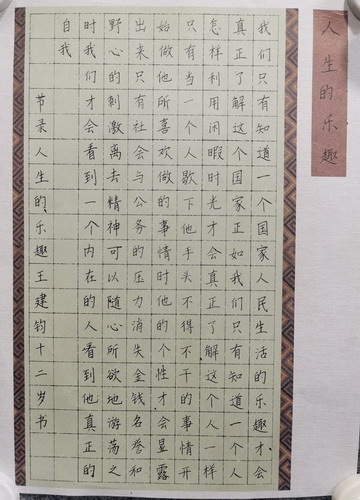 人生的乐趣
我们只有知道一个国家人民生活的乐趣才会
真正了解这个国家正如我们只有知道一个人
怎样利用闲暇时光才会真正了解这个人一样
只有当一个人歇下他手头不得不干的事情开
始做他所喜欢做的事情时他的个性才会显露
出来只有社会与公务的压力消失金钱名誉和
野心的刺激离去精神可以随心所欲地游荡之
时我们才会看到一个内在的人看到他真正的
自我
节录人生的乐趣王建钧十二岁书